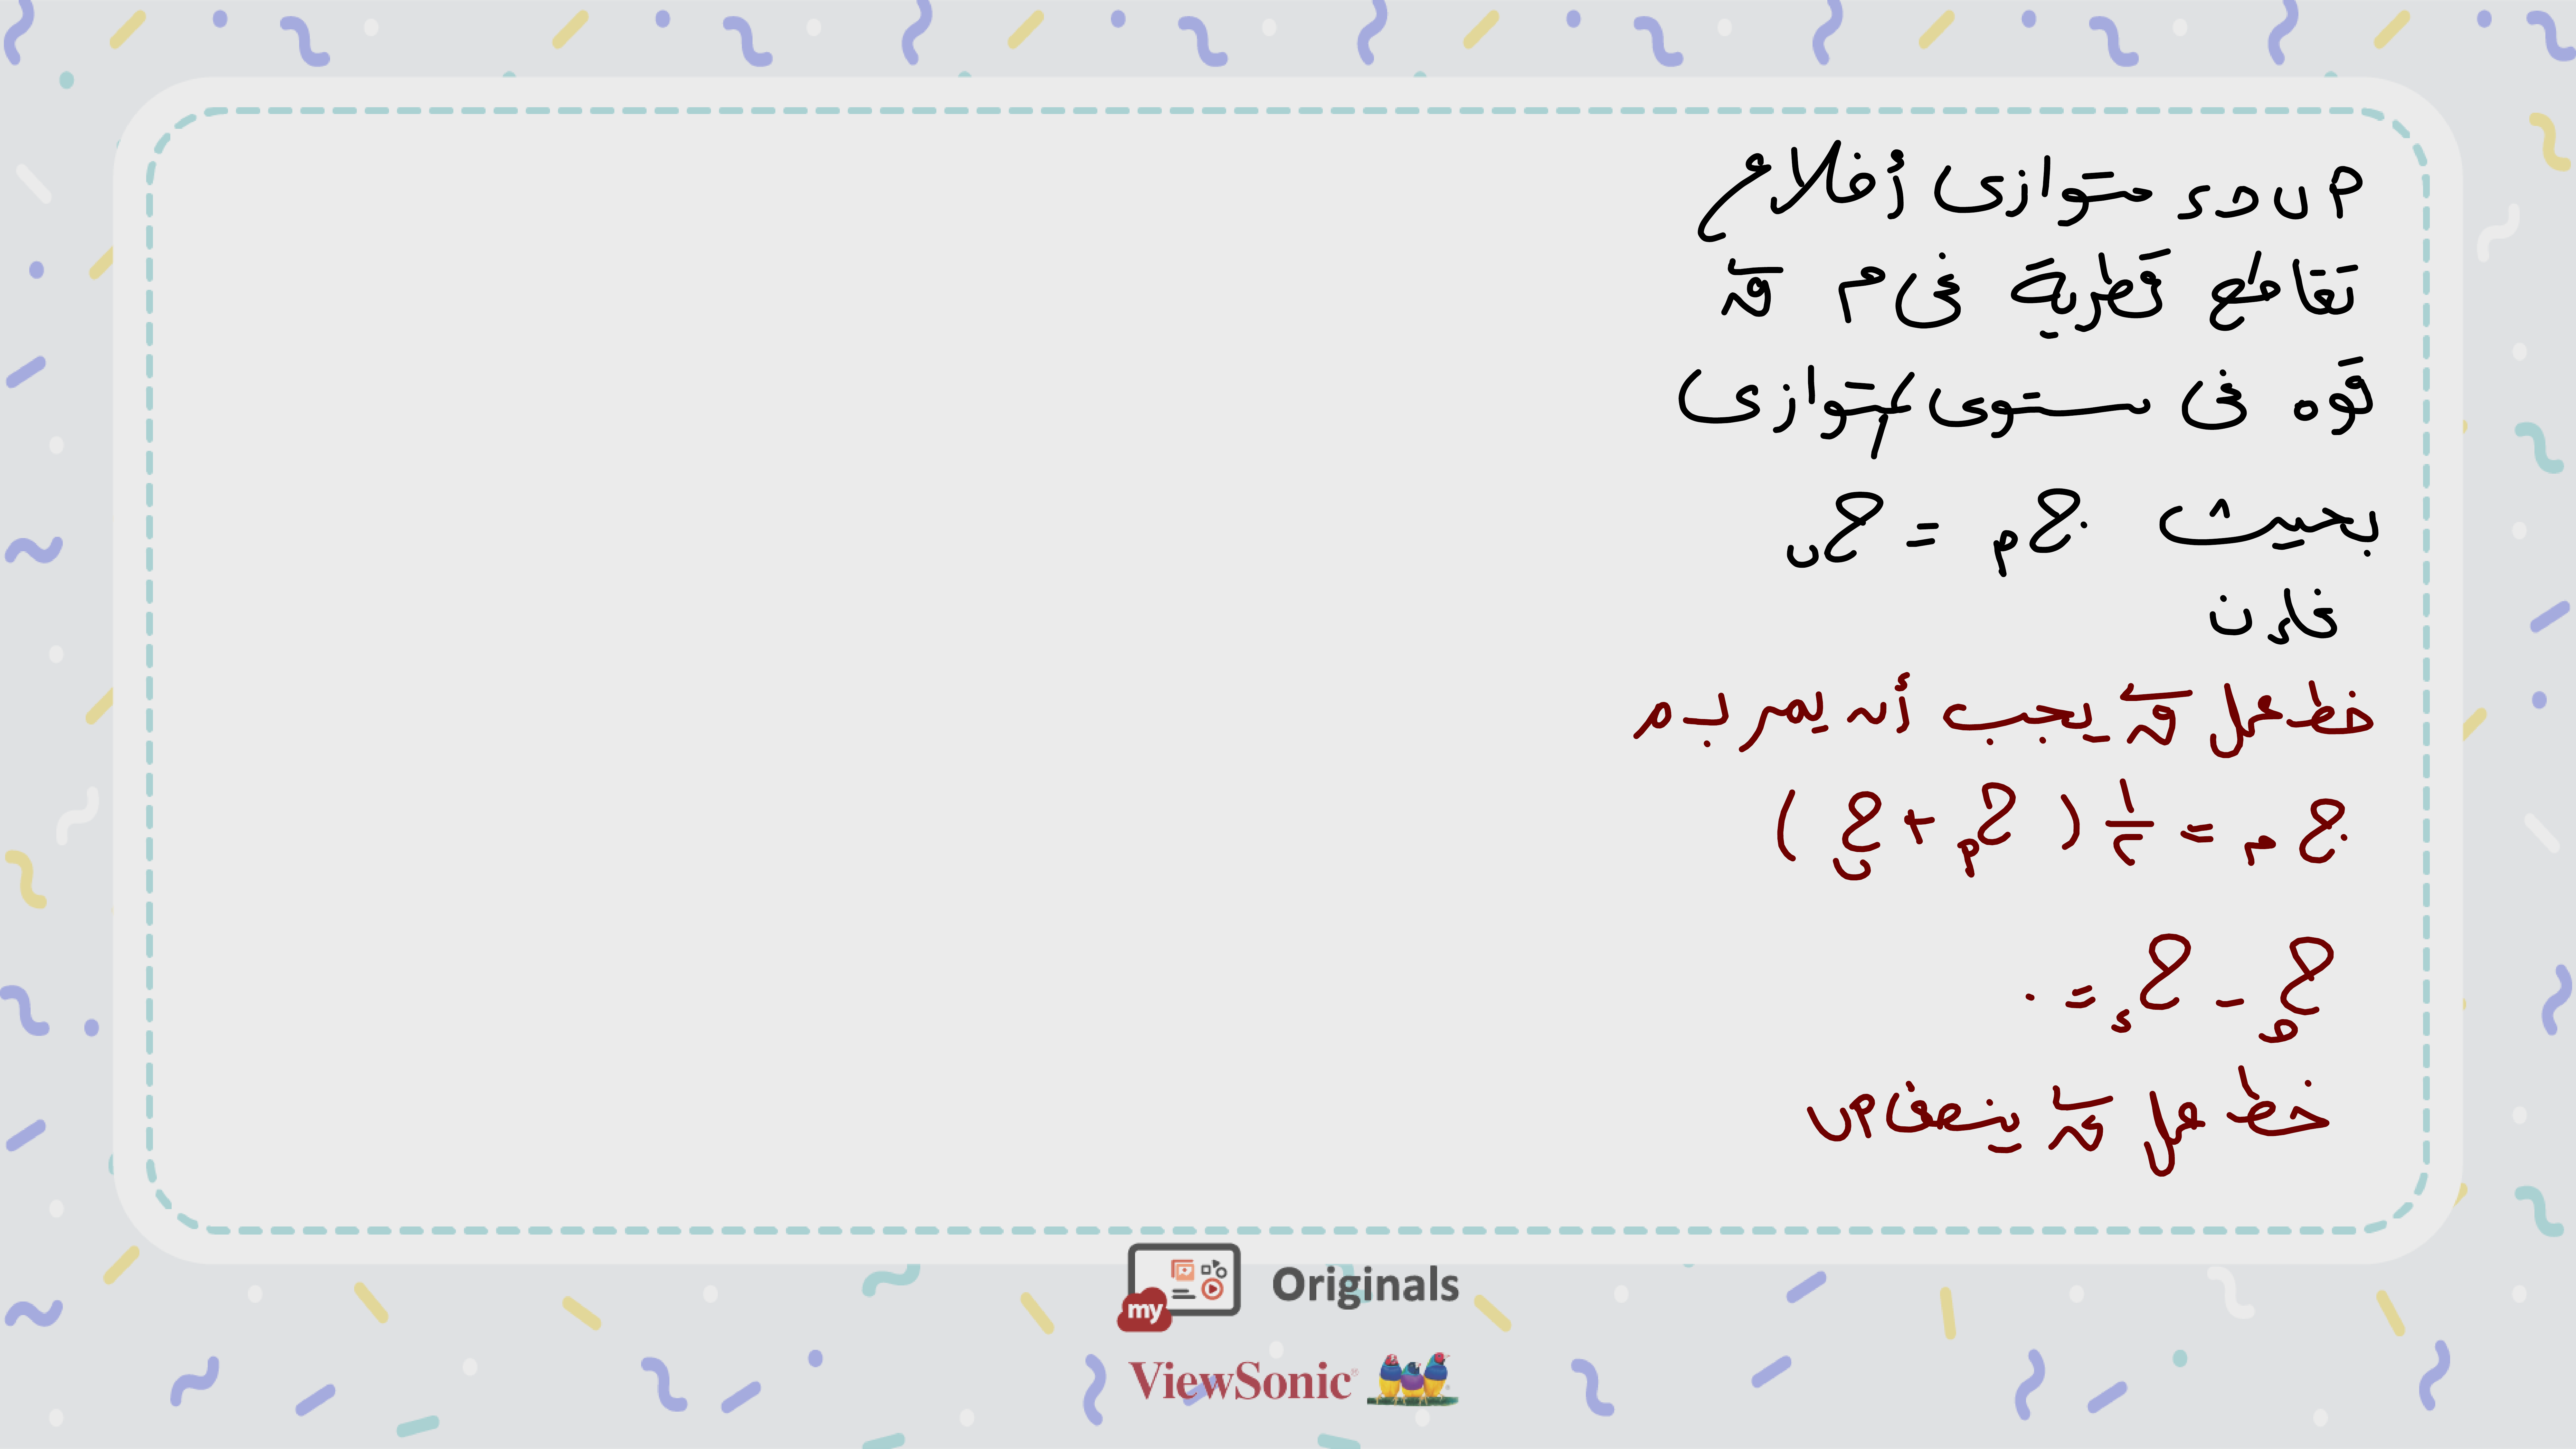 م ب ح د متوازى أضلاع
تقاطع قطرية فى م ق
قوه فى مستوى المتوازى
بحيث ج م = ج ب
فإن
خط عمل ق يجب أن يمر بـ م
ج م = ١/٢ ( ج م + ج ب )
ج ح - ج د = ٠
خط عمل ق ينصف م ب
my Originals
ViewSonic